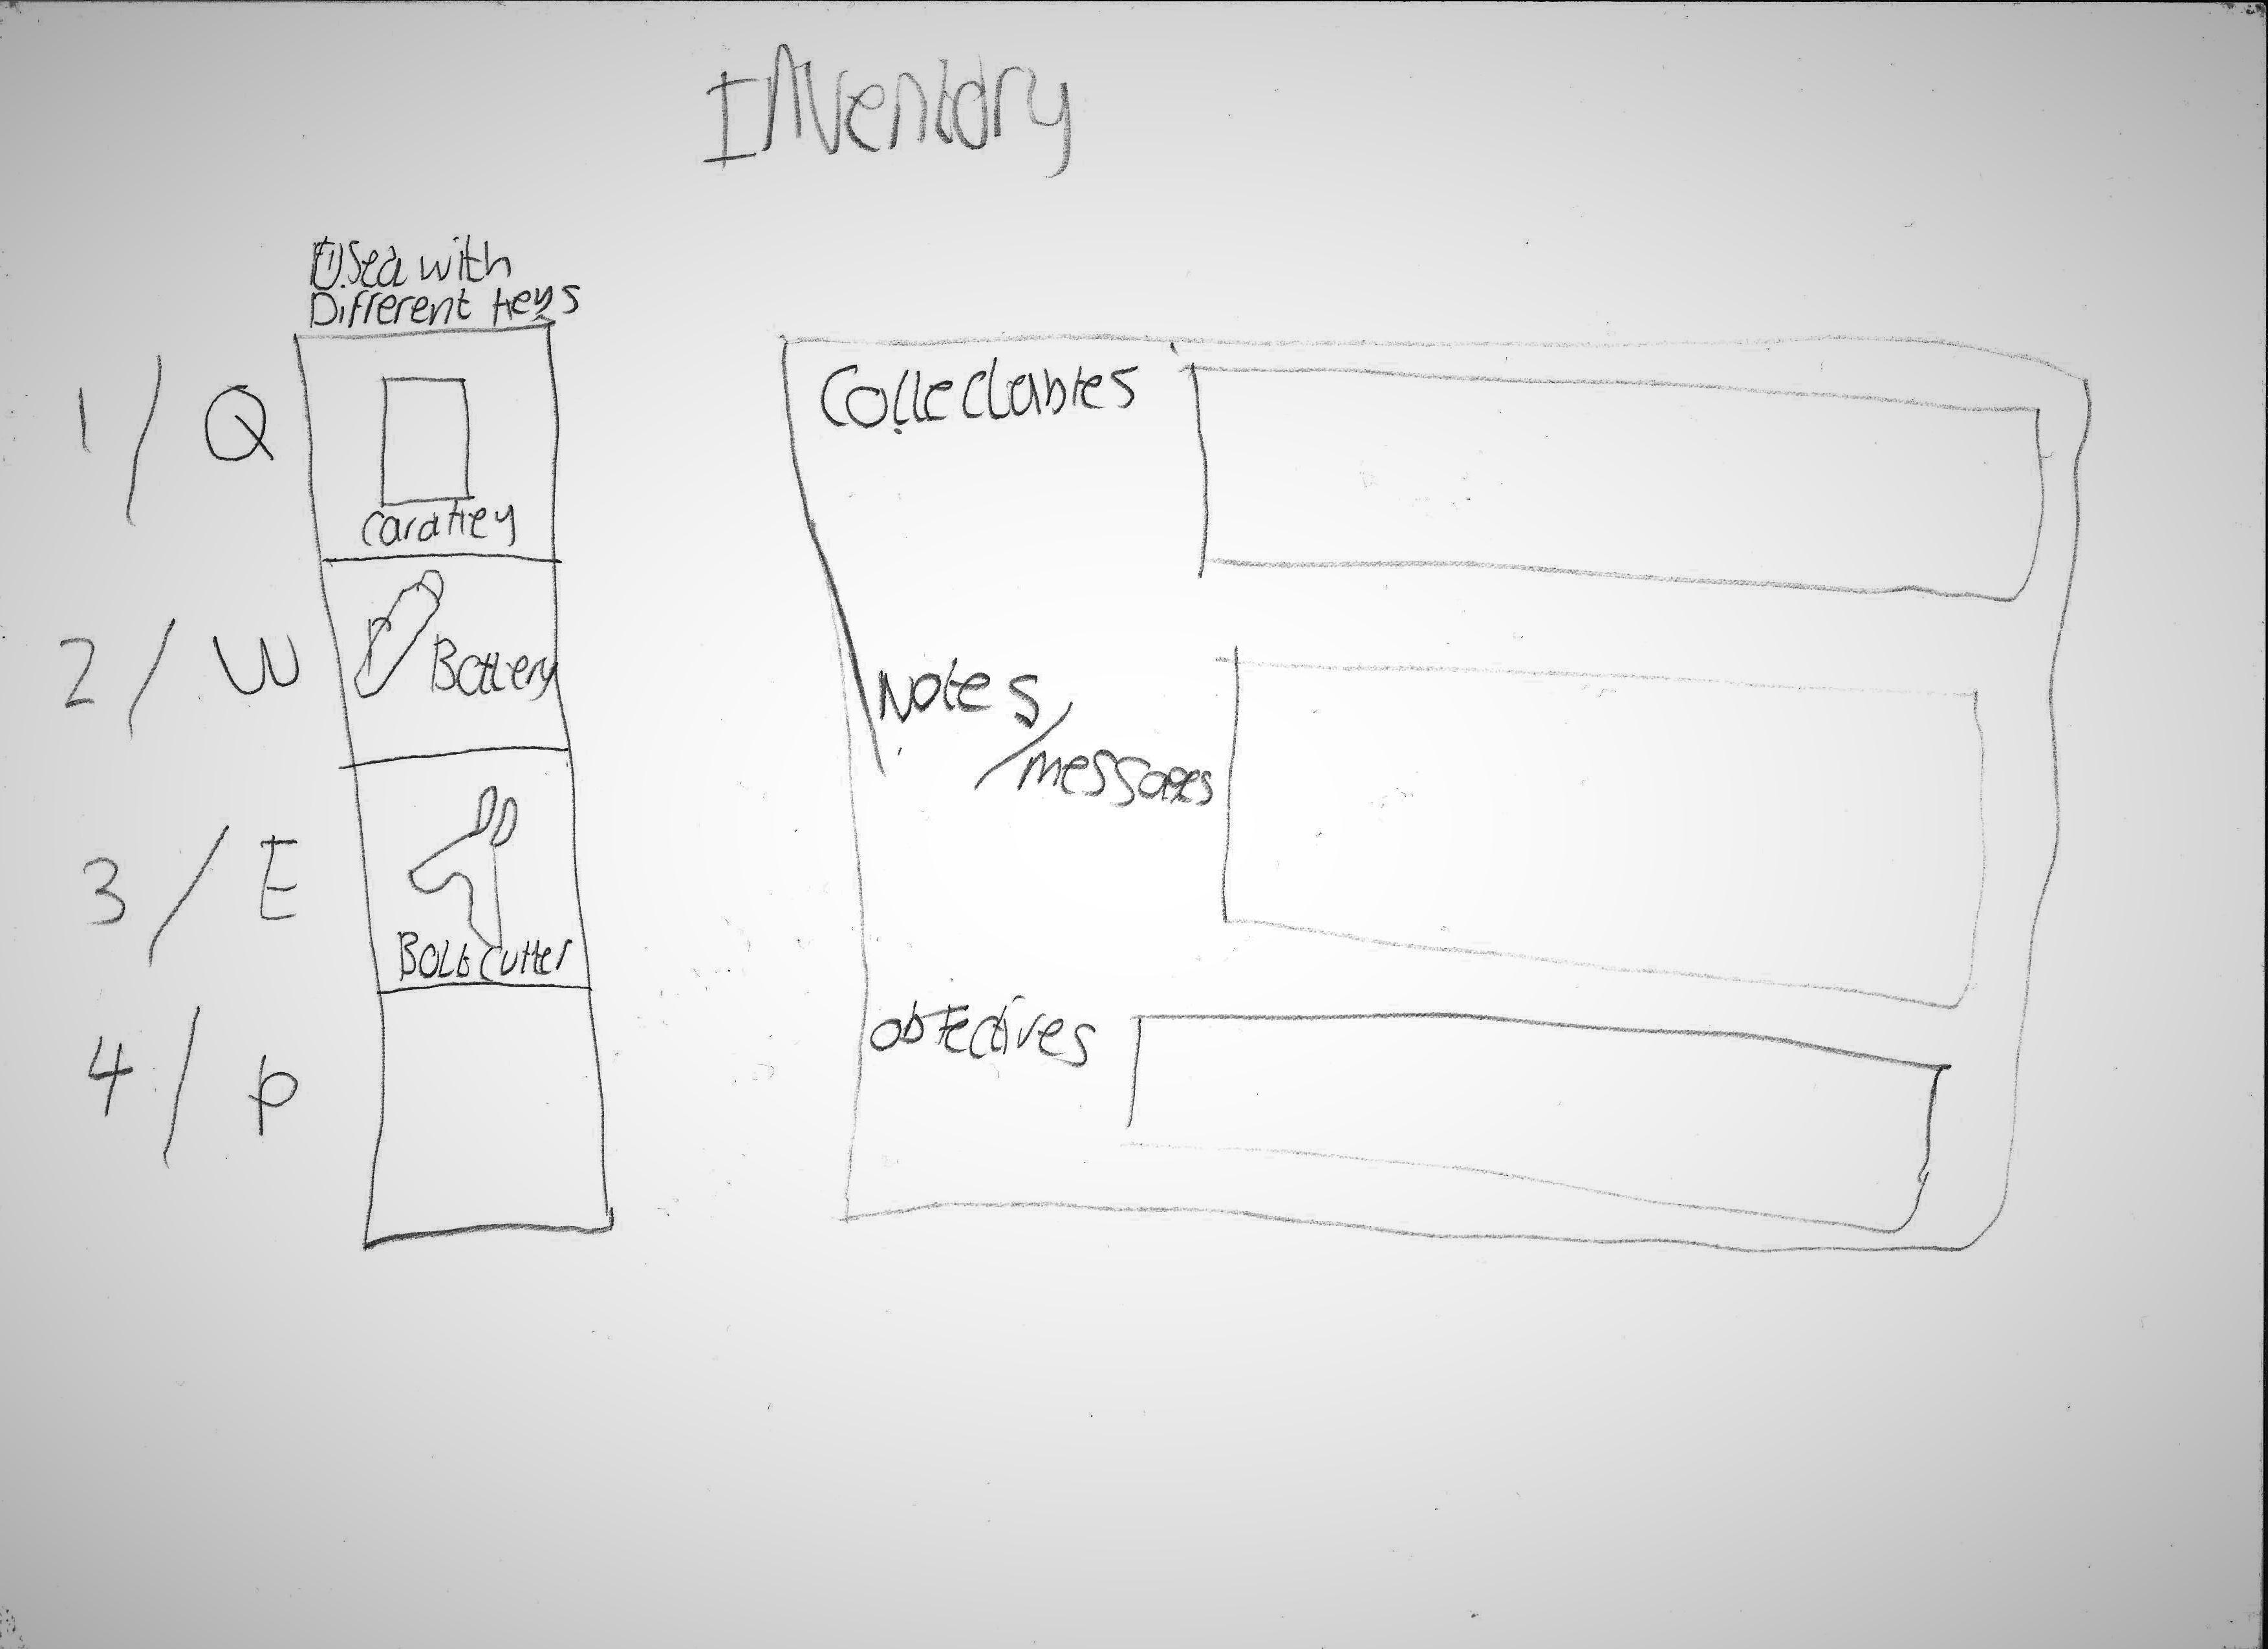 Inventory
Used with
Different keys
1 / Q
Cardkey
2 / W
Battery
3 / E
Bolt cutter
4 / p
Collectables
Notes
/messages
objectives